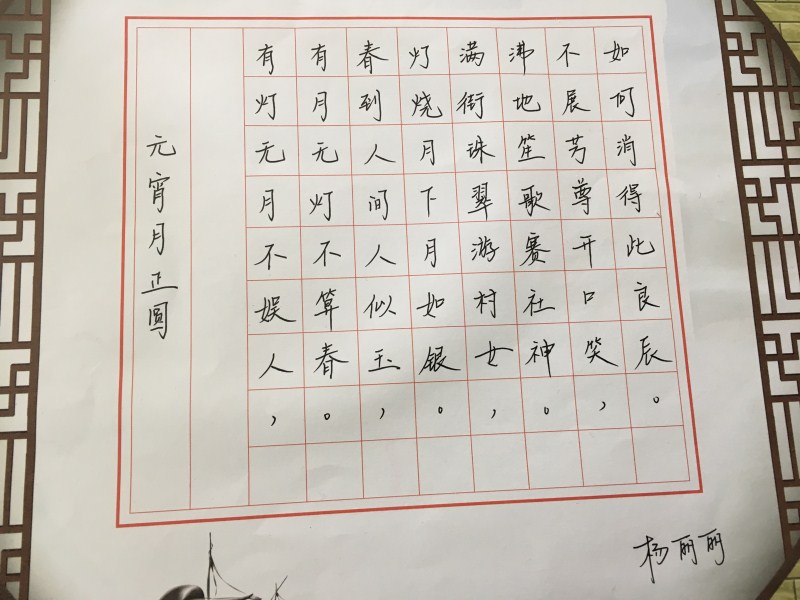 元宵月正圆
有灯无月不娱人，
有月无灯不算春。
春到人间人似玉，
灯烧月下月如银。
满街珠翠游村女，
沸地笙歌赛社神。
不展芳尊开口笑，
如何消得此良辰。
杨丽丽